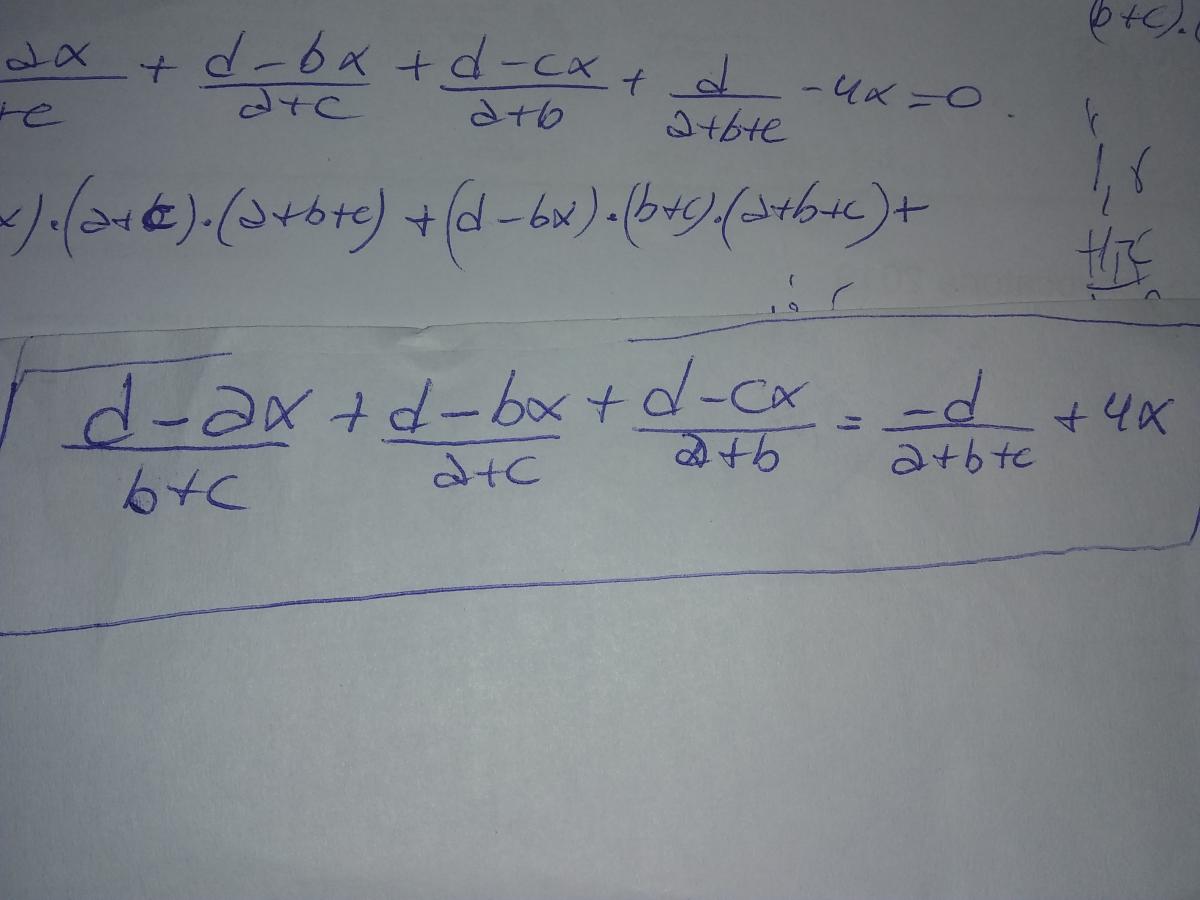 (b+c).(
ax/+c + d-bx/a+c + d-cx/a+b + d/a+b+c - 4x = 0
x).(a+c).(a+b+c) + (d-bx).(b+c).(a+b+c) +
d-ax/b+c + d-bx/a+c + d-cx/a+b = -d/a+b+c + 4x